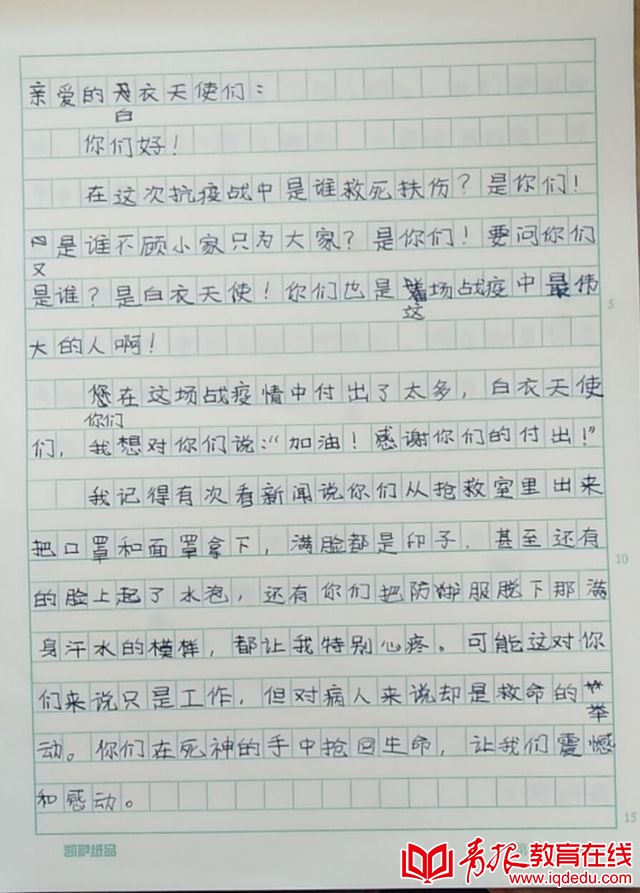 亲爱的白衣天使们：
你们好！
在这次抗疫战中是谁救死扶伤？是你们！
又是谁不顾小家只为大家？是你们！要问你们
是谁？是白衣天使！你们也是这场战疫中最伟
大的人啊！
你们在这场战疫情中付出了太多，白衣天使
们，我想对你们说：“加油！感谢你们的付出！”
我记得有次看新闻说你们从抢救室里出来
把口罩和面罩拿下，满脸都是印子．甚至还有
的脸上起了水泡，还有你们把防护服脱下那满
身汗水的模样，都让我特别心疼。可能这对你
们来说只是工作，但对病人来说却是救命的举
动。你们在死神的手中抢回生命，让我们震憾
和感动。
5
10
15
青报教育在线
www.iqdedu.com